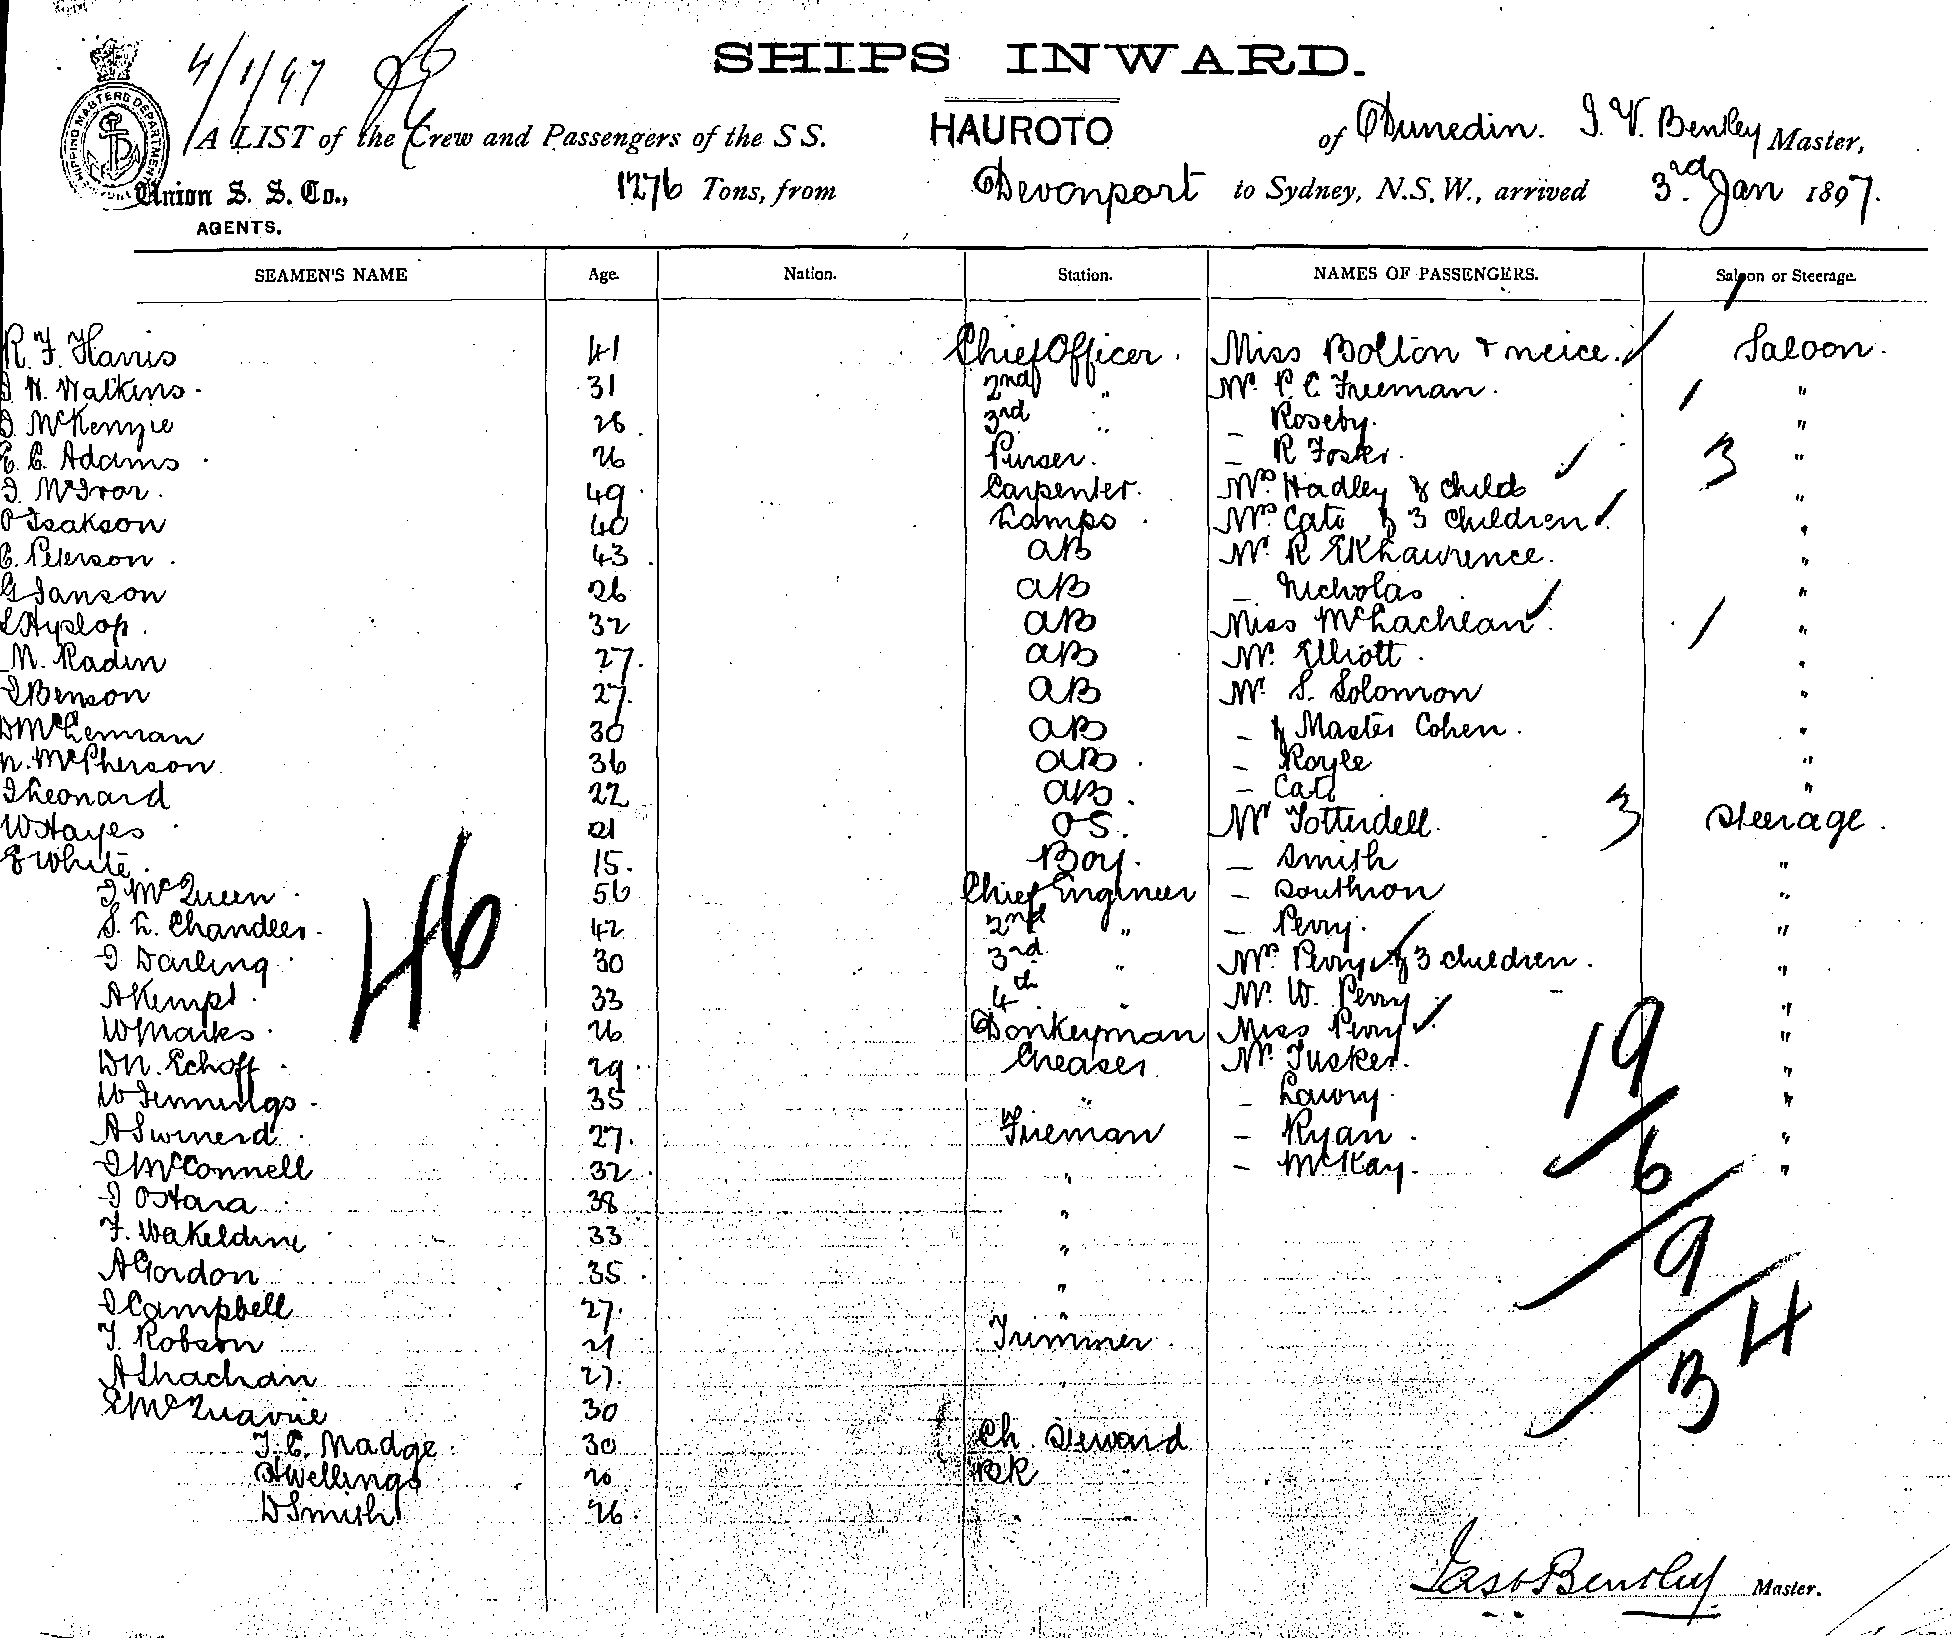 4/1/97
SHIPS INWARD.
A LIST of the Crew and Passengers of the SS. HAUROTO of Dunedin. J. V. Bentley Master,
Union S. S. Co., 1276 Tons, from Devonport to Sydney, N.S.W., arrived 3rd Jan 1897.
AGENTS.
SEAMEN'S NAME Age. Nation. Station. NAMES OF PASSENGERS. Saloon or Steerage.
R. F. Harris 41 Chief Officer. Miss Bolton & neice. Saloon.
Watkins 31 2nd " Mr. P C Freeman. 1 "
McKenzie 28 3rd " — Roseby. "
E. C. Adams 26 Purser. — R Foster. 3 "
J. McIvor. 49 Carpenter. Mrs Hadley & child "
O Isakson 40 Lamps Mrs Cato & 3 children "
C. Peterson 43 AB Mr. R "
G Janson 26 AB — Nicholas "
Hyslop. 32 AB Miss McLachlan. 1 "
M. Radin 27. AB Mr. Elliott "
J Benson 27. AB Mr S. Solomon "
D McLennan 30 AB — & Master Cohen. "
N. McPherson 36 AB — Royle "
J Leonard 22 AB — Cato "
W Hayes 21 OS. Mr Totterdell. 3 Steerage.
E White 15. Boy. — Smith "
J McQueen 56 Chief Engineer — Southion "
S. L. Chandler 42 2nd " — Perry. "
J Darling 30 3rd " Mrs Perry & 3 children. "
A Kempt 33 4th " Mr. W. Perry "
W Marks 26 Donkeyman Miss Perry "
29 Greaser Mr. Tusker. "
W Jennings 35 " — Lawry. "
A Swinerd 27. Fireman — Ryan "
J McConnell 32 " — McKay. "
J OHara 38 "
F. Wakeldine 33 "
A Gordon 35 "
J Campbell 27. "
T. Robson 21 Trimmer
A Strachan 27. "
McQuarrie 30
J. C. Madge 30 Ch. Steward
H Wellings 20 BK
D Smith 26. " "
46
19
6
9
4
3
Jas V Bentley Master.